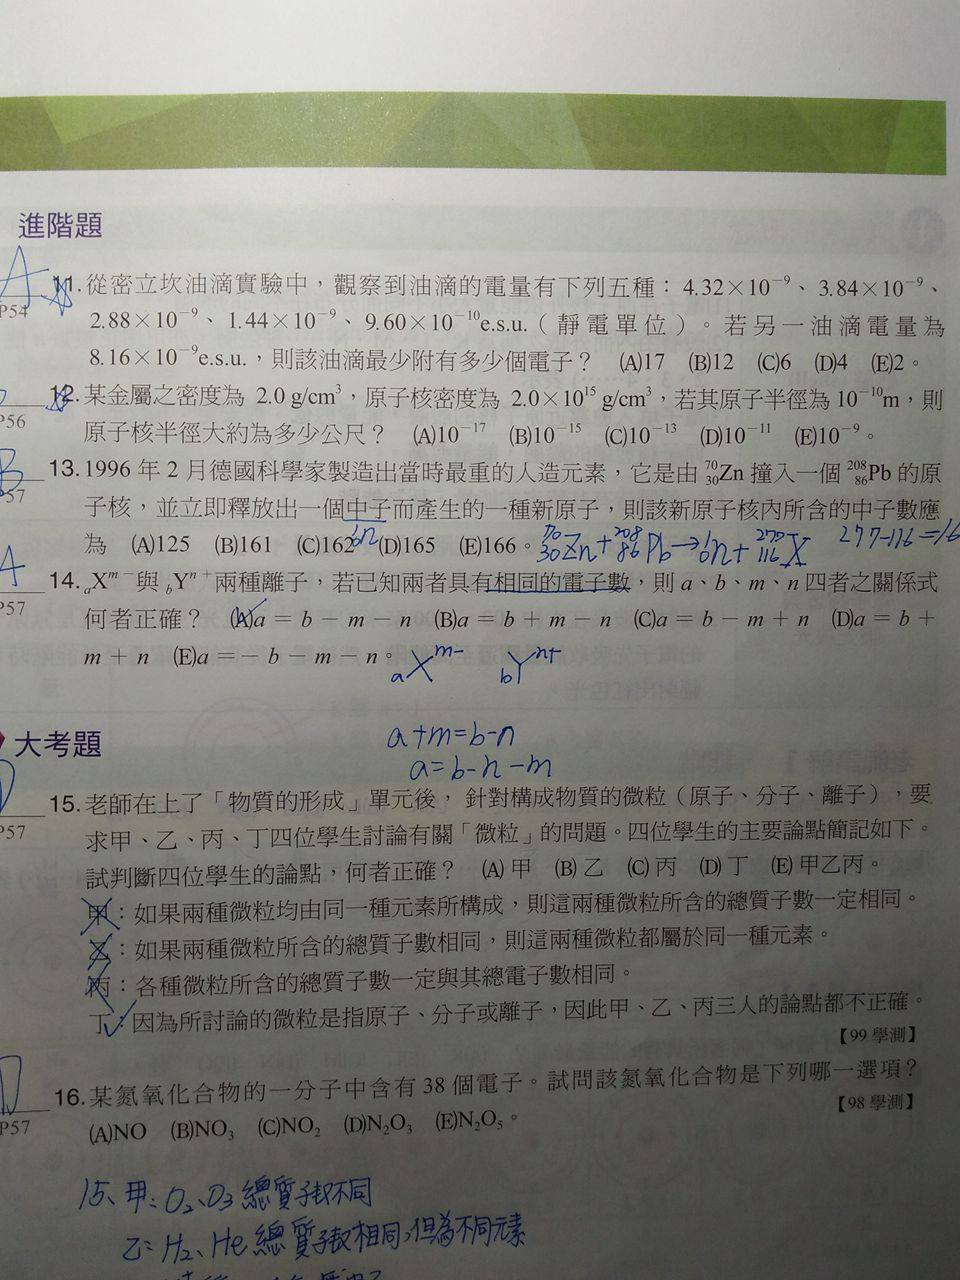 進階題
A
11.從密立坎油滴實驗中，觀察到油滴的電量有下列五種：4.32×10⁻⁹、3.84×10⁻⁹、
P54
2.88×10⁻⁹、1.44×10⁻⁹、9.60×10⁻¹⁰e.s.u.（靜電單位）。若另一油滴電量為
8.16×10⁻⁹e.s.u.，則該油滴最少附有多少個電子？ (A)17 (B)12 (C)6 (D)4 (E)2。
12.某金屬之密度為 2.0 g/cm³，原子核密度為 2.0×10¹⁵ g/cm³，若其原子半徑為 10⁻¹⁰m，則
P56
原子核半徑大約為多少公尺？ (A)10⁻¹⁷ (B)10⁻¹⁵ (C)10⁻¹³ (D)10⁻¹¹ (E)10⁻⁹。
B
13.1996 年 2 月德國科學家製造出當時最重的人造元素，它是由 ⁷⁰₃₀Zn 撞入一個 ²⁰⁸₈₆Pb 的原
P57
子核，並立即釋放出一個中子而產生的一種新原子，則該新原子核內所含的中子數應
為 (A)125 (B)161 (C)162 (D)165 (E)166。
⁷⁰₃₀Zn+²⁰⁸₈₆Pb→¹₀n+²⁷⁷₁₁₆X 277-116=16
A
14.ₐXᵐ⁻與 bYⁿ⁺兩種離子，若已知兩者具有相同的電子數，則 a、b、m、n 四者之關係式
P57
何者正確？ (A)a = b − m − n (B)a = b + m − n (C)a = b − m + n (D)a = b +
m + n (E)a = − b − m − n。
ₐXᵐ⁻ bYⁿ⁺
a+m=b-n
a=b-n-m
大考題
D
15.老師在上了「物質的形成」單元後， 針對構成物質的微粒（原子、分子、離子），要
P57
求甲、乙、丙、丁四位學生討論有關「微粒」的問題。四位學生的主要論點簡記如下。
試判斷四位學生的論點，何者正確？ (A) 甲 (B) 乙 (C) 丙 (D) 丁 (E) 甲乙丙。
甲：如果兩種微粒均由同一種元素所構成，則這兩種微粒所含的總質子數一定相同。
乙：如果兩種微粒所含的總質子數相同，則這兩種微粒都屬於同一種元素。
丙：各種微粒所含的總質子數一定與其總電子數相同。
丁：因為所討論的微粒是指原子、分子或離子，因此甲、乙、丙三人的論點都不正確。
【99 學測】
D
16.某氮氧化合物的一分子中含有 38 個電子。試問該氮氧化合物是下列哪一選項？
P57
(A)NO (B)NO₃ (C)NO₂ (D)N₂O₃ (E)N₂O₅。
【98 學測】
15、甲：O₂、O₃ 總質子數不同
乙：H₂、He 總質子數相同，但為不同元素